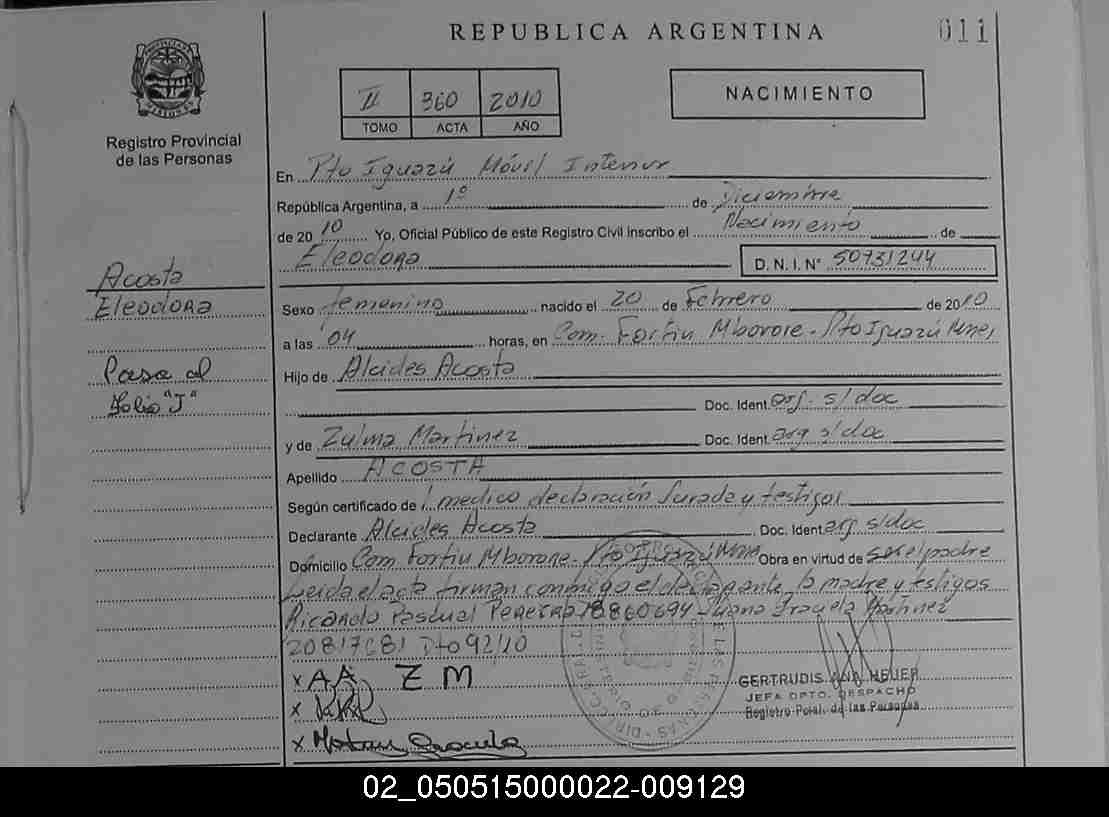 REPUBLICA ARGENTINA
011
Registro Provincial
de las Personas
II 360 2010
TOMO ACTA AÑO
NACIMIENTO
En Pto Iguazú Móvil Interior
República Argentina, a 1º de Diciembre
de 2010 Yo, Oficial Público de este Registro Civil inscribo el Nacimiento de
Eleodora D. N. I. Nº 50731244
Acosta
Eleodora
Pasa al
Folio "J"
Sexo femenino nacido el 20 de Febrero de 2010
a las 04 horas, en Com. Fortin Mborore - Pto Iguazú Mnes
Hijo de Alcides Acosta
Doc. Ident. arg. s/doc
y de Zulma Martinez Doc. Ident. arg s/doc
Apellido ACOSTA
Según certificado de 1 medico declaración Jurada y testigos
Declarante Alcides Acosta Doc. Ident. arg s/doc
Domicilio Com Fortin Mborore - Pto Iguazú Mnes Obra en virtud de ser el padre
Leida el acta firman conmigo el declarante la madre y testigos
Ricardo Pascual Pereira 18860694 - Juana Martinez
20817681 Dto 92/10
x AA ZM
x
x
GERTRUDIS ANA HEUER
JEFA DPTO. DESPACHO
Registro Pcial. de las Personas
02_050515000022-009129